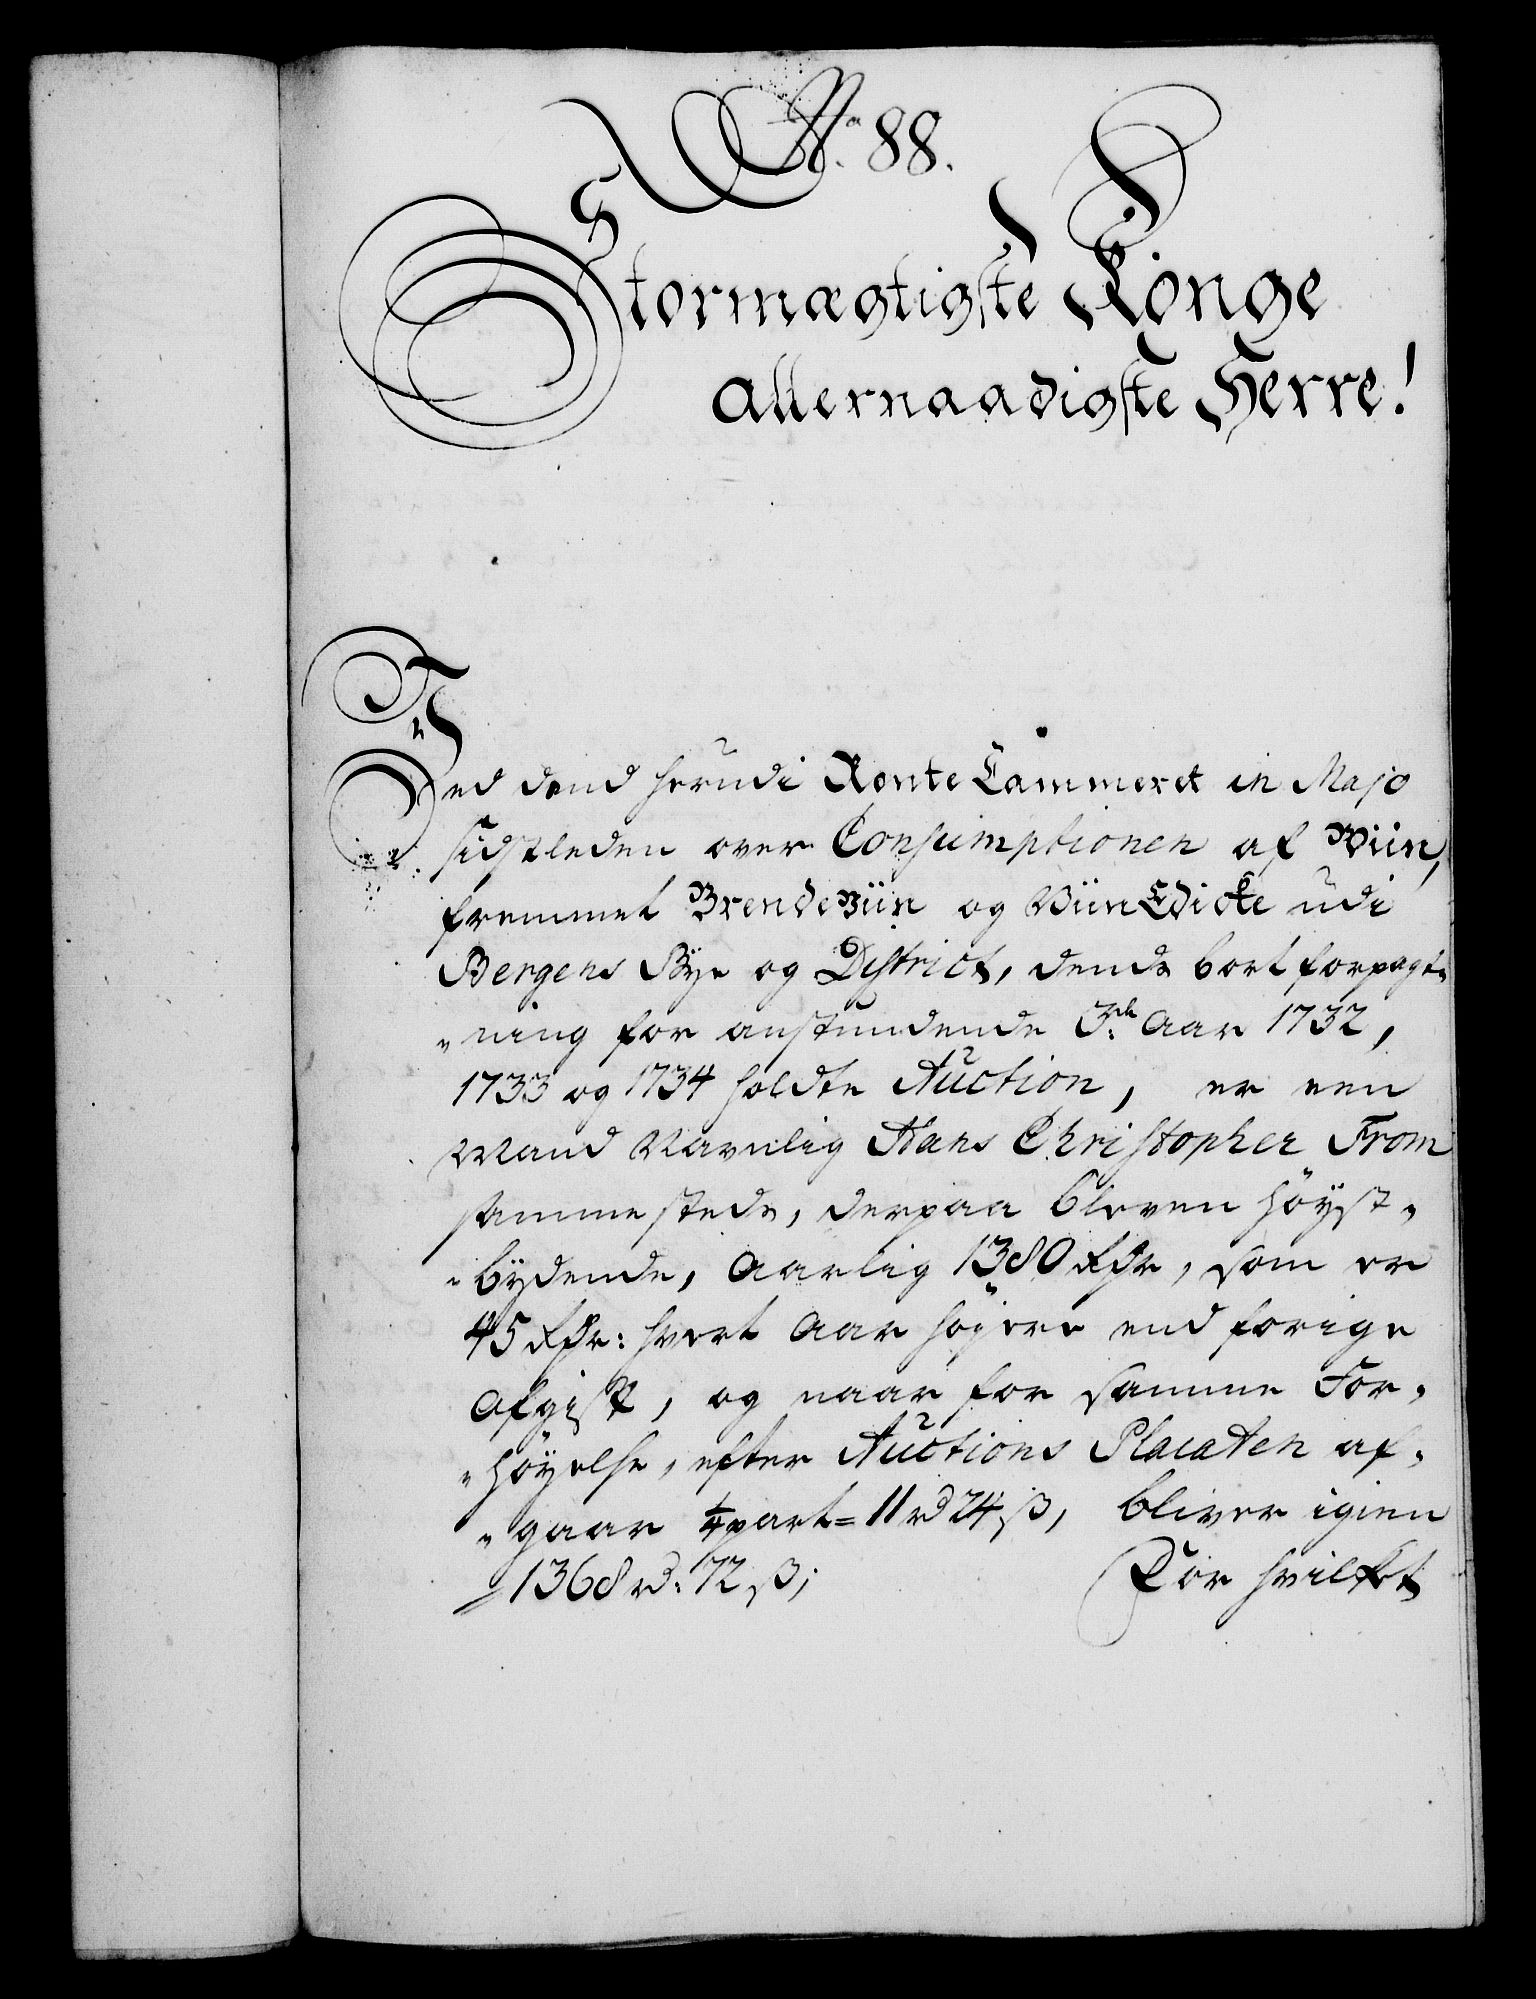 No. 88.
Stormægtigste Konge
Allernaadigste Herre!
Ved dend herudi Rente Cammeret in Majo
sidstleden over Consumptionen af Viin,
fremmet BrendeViin og ViinEdicke udi
Bergens Bye og District, dends bortforpagt-
"ning for anstundende 3de Aar 1732,
1733 og 1734 holdte Auction, er een
Mand Navnlig Hans Christopher From
sammesteds, derpaa bleven höyst-
"bydende, Aarlig 1380 Rdr, som er
45 Rdr: hvert Aar höjere end forige
Afgift, og naar for samme For-
"höyelse, efter Auctions Placaten af-
"gaar 1/4 part = 11 rd 24 ß, bliver igien
= 1368 rd: 72 ß; For hvilket